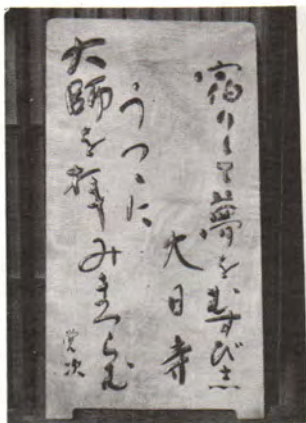 宿りして夢をむすび志
大日寺
うつゝに
大師を拝みまつらむ